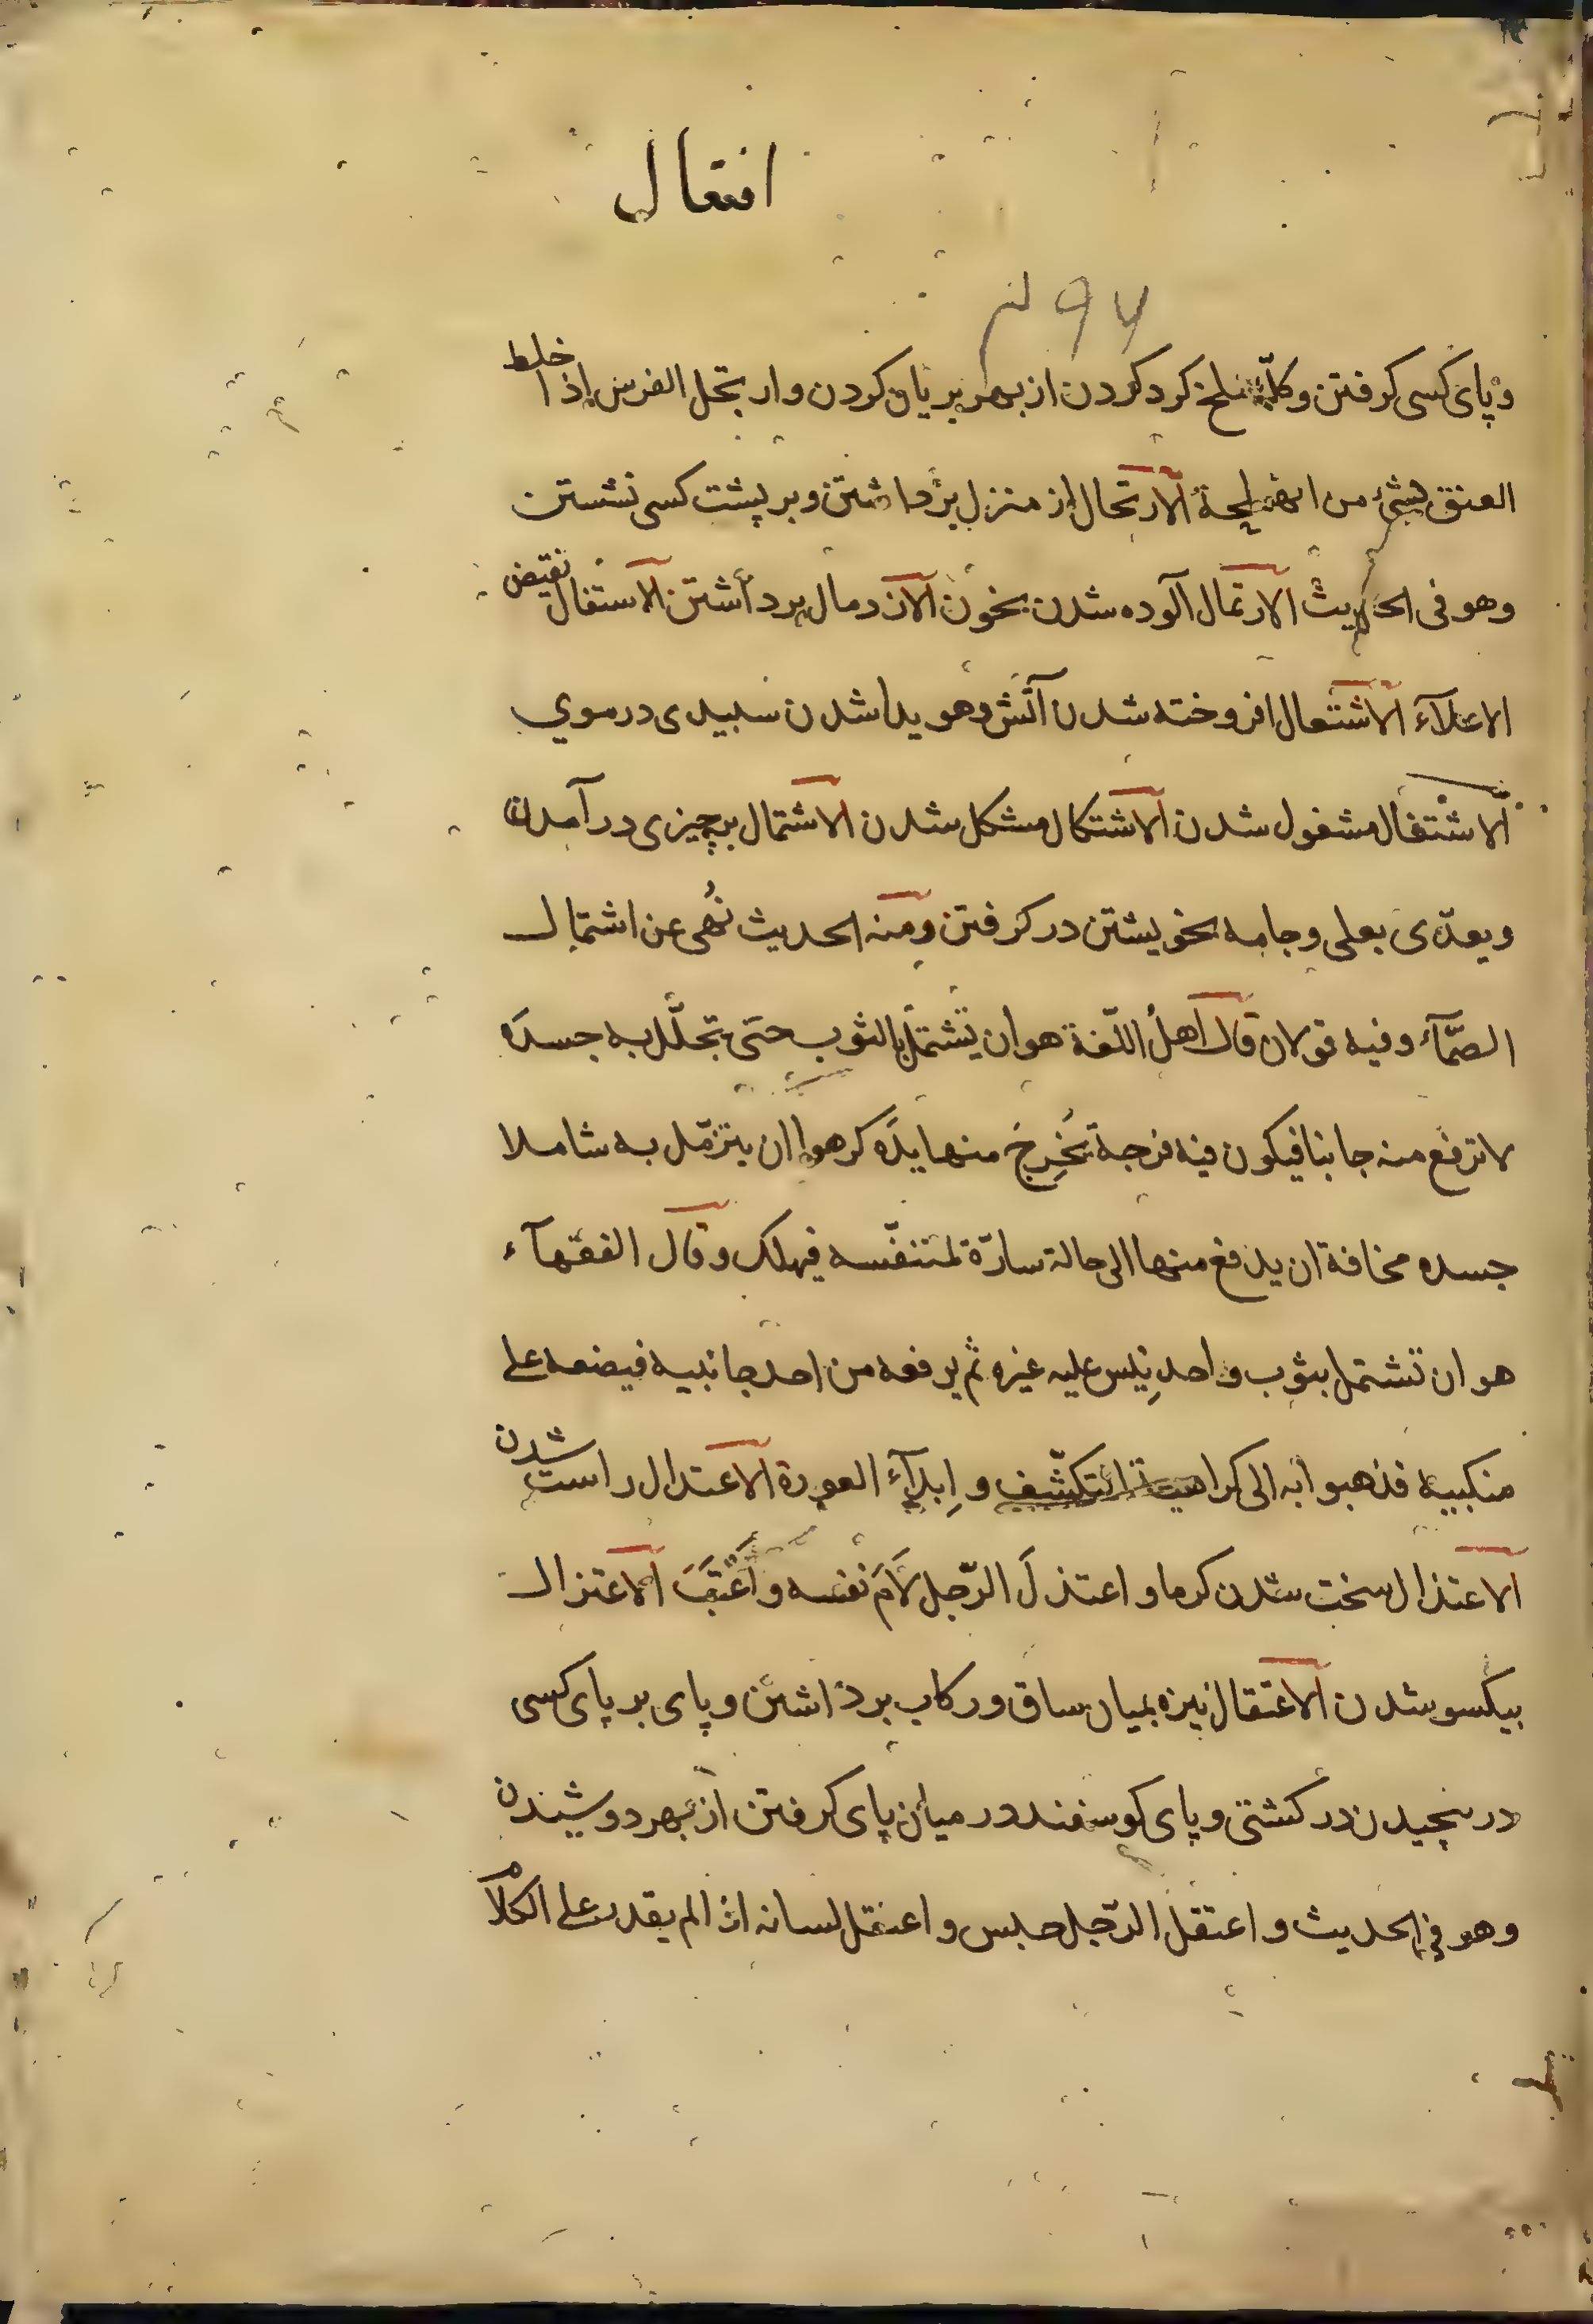 افتعال
وپای کسی کرفتن وکلّهٔ ملخ کرد کردن از بهر بریان کردن وارتجل الفرس اذا خلط
العنق بشئ من الهملجة الارتحال از منزل برداشتن وبر پشت کسی نشستن
وهو فی الحدیث الارتمال آلوده شدن بخون الازدمال برداشتن الاستفال نقیض
الاعلآء الاشتعال افروخته شدن آتش وهویدا شدن سبیدی در موي
الاشتغال مشغول شدن الاشتکال مشکل شدن الاشتمال بر چیزی در آمدن
ویعدّی بعلی وجامه بخویشتن در کرفتن ومنه الحدیث نُهی عن اشتمال
الصمّآء وفیه قولان قال اهلُ اللّغة هو ان تشتمل بالثوب حتی تجلّل به جسدَه
لا ترفع منه جانبا فیکون فیه فرجة تُخرِجَ منها یدَه کرهوا ان یتزمّل به شاملا
جسده مخافة ان یدفع منها الی حالة سادّة لمتنفّسه فیهلک وقال الفقهآء
هو ان تشتمل بثوب واحدٍ لیس علیه غیره ثم یرفعه من احد جانبیه فیضعه علی
منکبیه فذهبوا به الی کراهیة التکشّف وإبدآء العورة الاعتدال راست شدن
الاعتذال سخت شدن کرما واعتذلَ الرّجل لَامَ نفسه واَعْتَبَ الاعتزال
بیکسو شدن الاعتقال نیزه بمیان ساق ورکاب برداشتن وپای بر پای کسی
در بیجیدن در کشتی وپای کوسفند در میان پای کرفتن از بهر دوشیدن
وهو فی الحدیث واعتقل الرّجل حبس واعتقل لسانه اذا لم یقدر علی الکلام